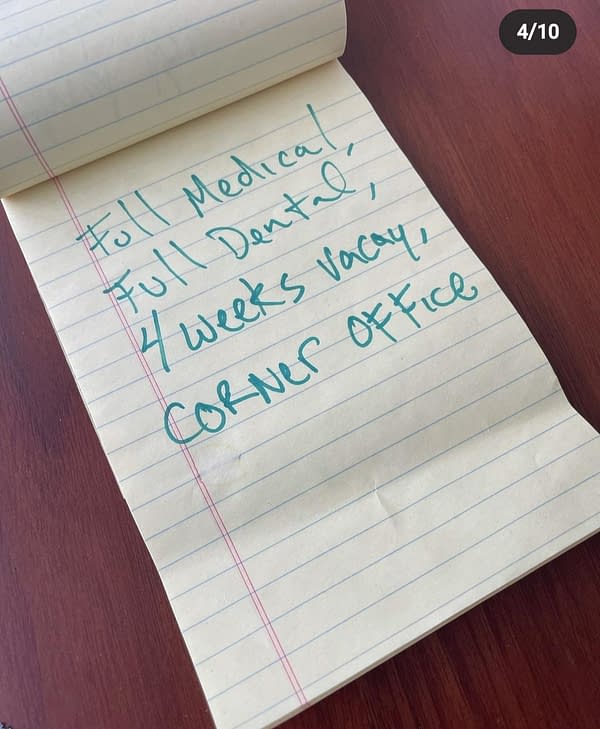 4/10
Full Medical,
Full Dental,
4 weeks vacay,
CORNer OFFice